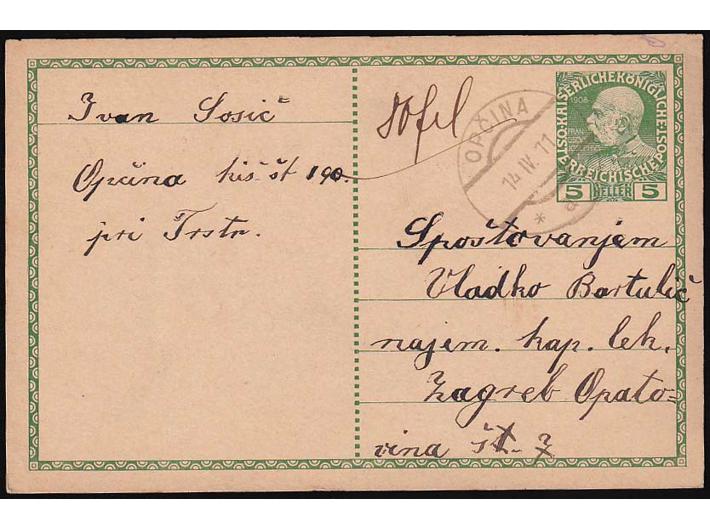 Ivan Sosič
Opčina hiš št 190.
pri Trstu.
OPČINA
14 IV. 11
* a
KAISERLICHEKÖNIGLICHE
ÖSTERREICHISCHEPOST
1908
5 HELLER 5
Spoštovanjem
Vladko Bartulič
najem. kap. lek.
Zagreb Opato=
vina št. 7